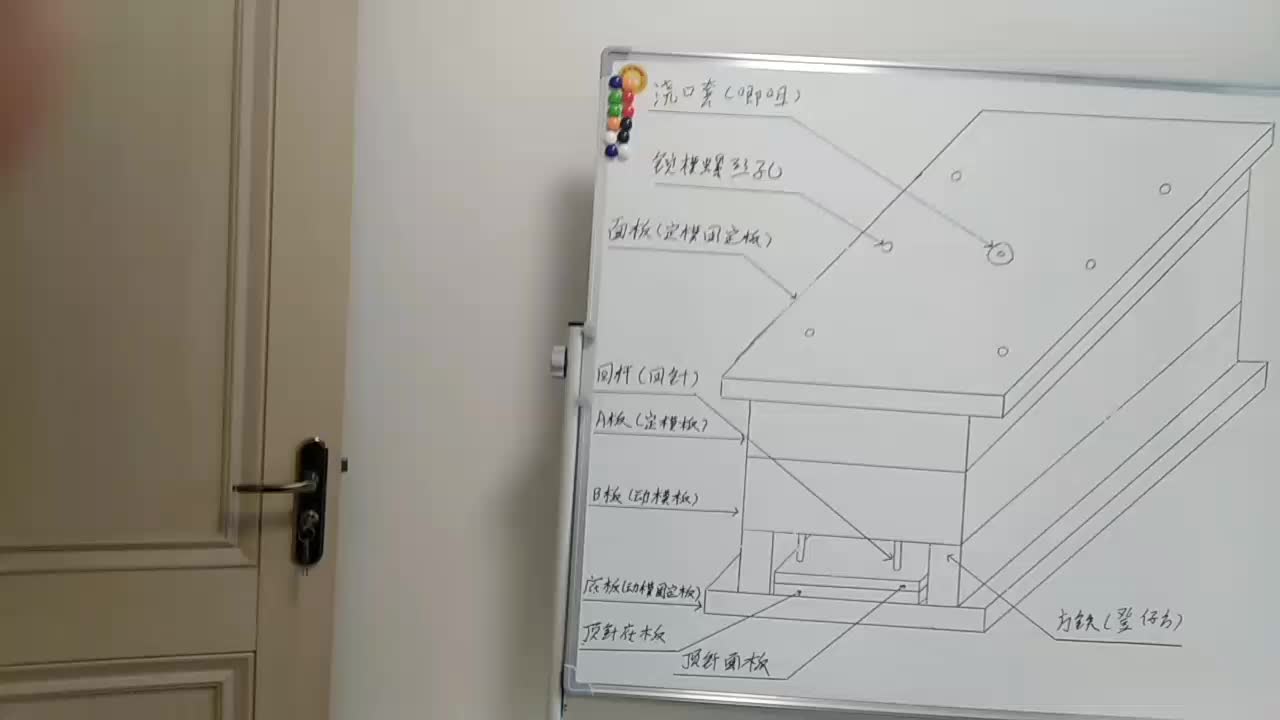 浇口套(唧咀)
锁模螺丝孔
面板(定模固定板)
回杆(回针)
A板(定模板)
B板(动模板)
底板(动模固定板)
顶针底板
顶针面板
方铁(凳仔方)